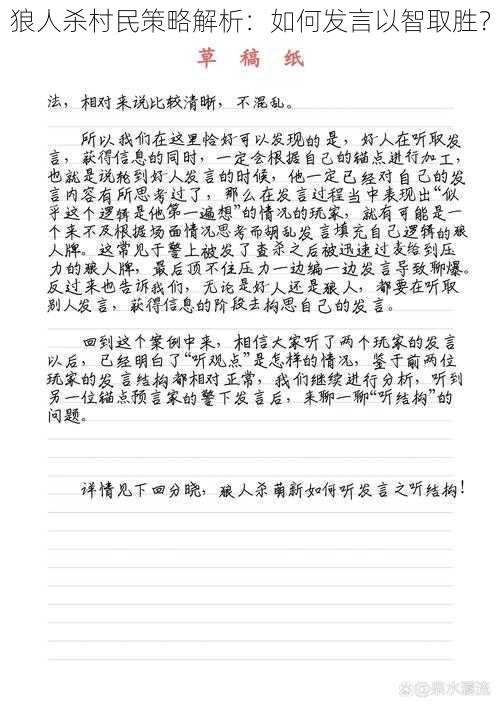 狼人杀村民策略解析：如何发言以智取胜？
草稿纸
法，相对来说比较清晰，不混乱。
所以我们在这里恰好可以发现的是，好人在听取发
言，获得信息的同时，一定会根据自己的锚点进行加工，
也就是说轮到好人发言的时候，他一定已经对自己的发
言内容有所思考过了，那么在发言过程当中表现出“似
乎这个逻辑是他第一遍想”的情况的玩家，就有可能是一
个来不及根据场面情况思考而胡乱发言填充自己逻辑的狼
人牌。这常见于警上被发了查杀之后被迅速过麦给到压
力的狼人牌，最后顶不住压力一边编一边发言导致聊爆。
反过来也告诉我们，无论是好人还是狼人，都要在听取
别人发言，获得信息的阶段去构思自己的发言。
回到这个案例中来，相信大家听了两个玩家的发言
以后，已经明白了“听观点”是怎样的情况，鉴于前两位
玩家的发言结构都相对正常，我们继续进行分析，听到
另一位锚点预言家的警下发言后，来聊一聊“听结构”的
问题。
详情见下回分晓，狼人杀萌新如何听发言之听结构！